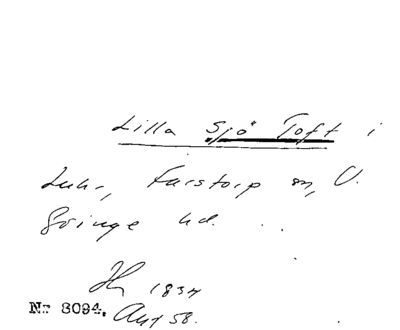 Lilla Sjö Toft i
Luhr, Farstorp sn, V.
Göinge hd.
1834
Nr 8094. Akt 58.